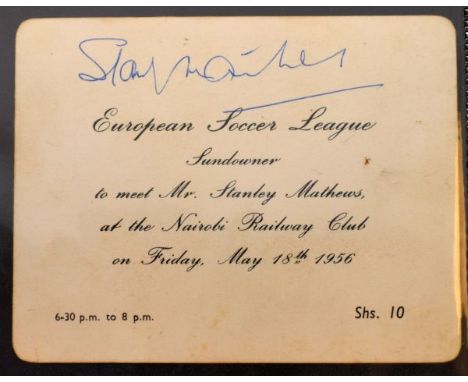 Stanley Matthews
European Soccer League
Sundowner
to meet Mr. Stanley Mathews,
at the Nairobi Railway Club
on Friday, May 18th 1956
6-30 p.m. to 8 p.m.
Shs. 10